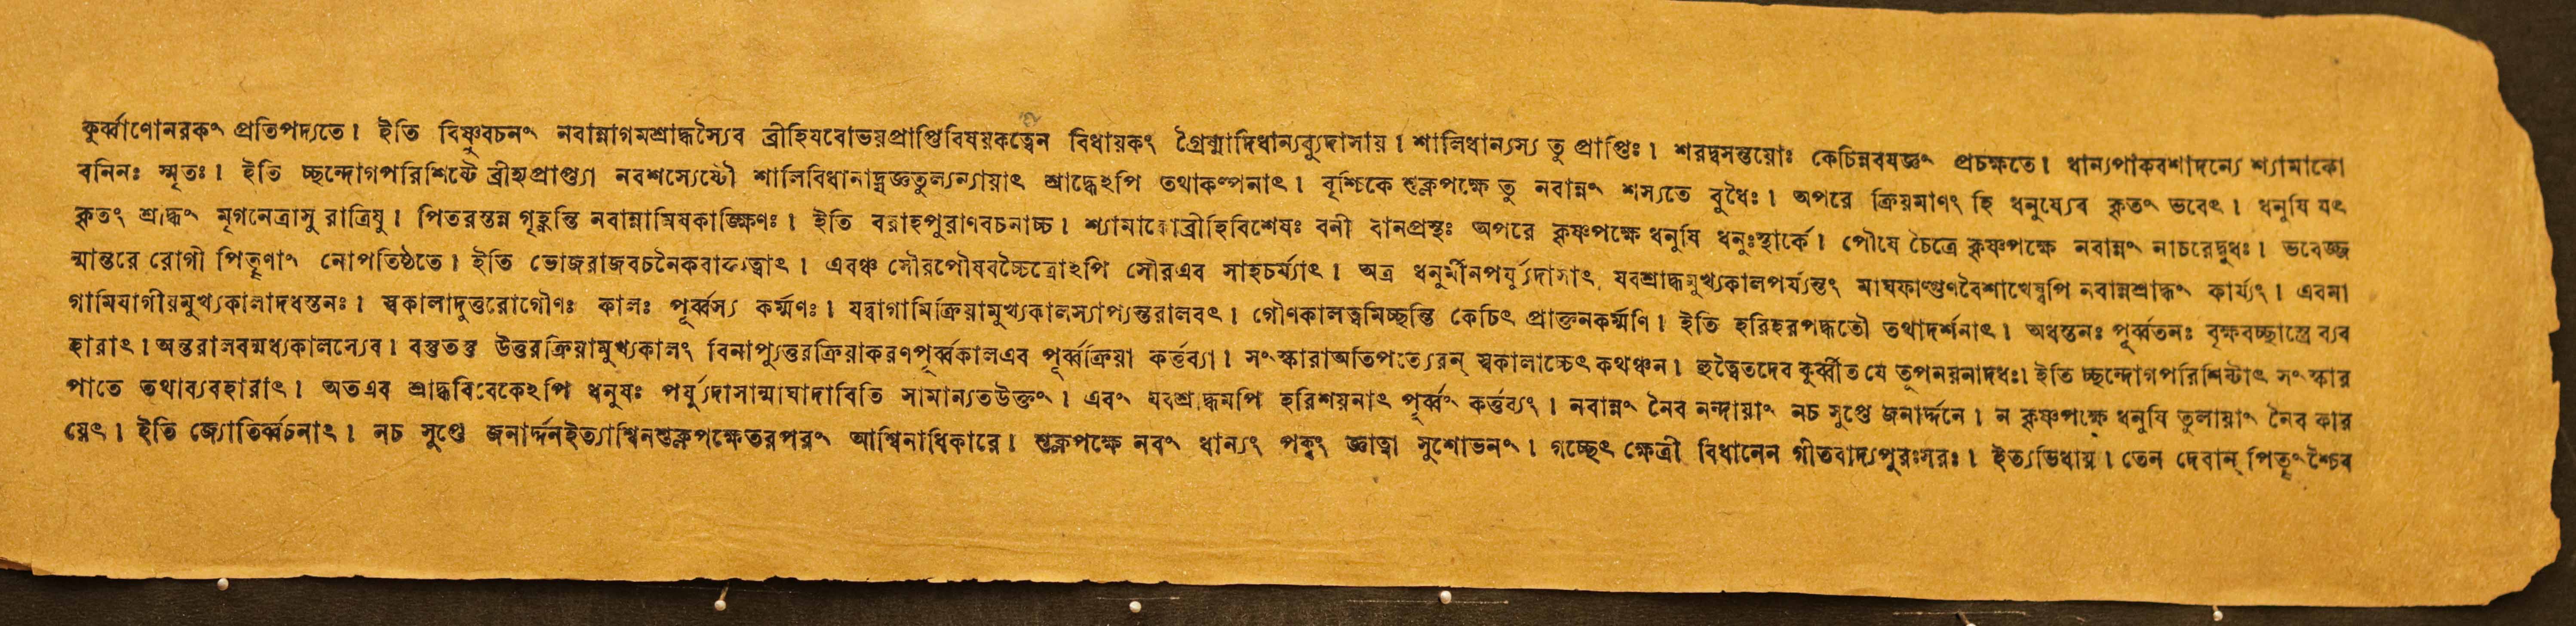 কুর্ব্বাণোনরকং প্রতিপদ্যতে। ইতি বিষ্ণুবচনং নবান্নাগমশ্রাদ্ধস্যৈব ব্রীহিযবোভয়প্রাপ্তিবিষয়কত্বেন বিধায়কং গ্রৈষ্মাদিধান্যব্যুদাসায়। শালিধান্যস্য তু প্রাপ্তিঃ। শরদ্বসন্তয়োঃ কেচিন্নবযজ্ঞং প্রচক্ষতে। ধান্যপাকবশাদন্যে শ্যামাকো
বনিনঃ স্মৃতঃ। ইতি চ্ছন্দোগপরিশিষ্টে ব্রীহ্যপ্রাপ্ত্যা নবশস্যেষ্টৌ শালিবিধানাদ্যজ্ঞতুল্যন্যায়াৎ শ্রাদ্ধেঽপি তথাকল্পনাৎ। বৃশ্চিকে শুক্লপক্ষে তু নবান্নং শস্যতে বুধৈঃ। অপরে ক্রিয়মাণং হি ধনুষ্যেব কৃতং ভবেৎ। ধনুষি যৎ
কৃতং শ্রাদ্ধং মৃগনেত্রাসু রাত্রিষু। পিতরস্তন্ন গৃহ্ণন্তি নবান্নামিষকাঙ্ক্ষিণঃ। ইতি বরাহপুরাণবচনাচ্চ। শ্যামাকোব্রীহিবিশেষঃ বনী বানপ্রস্থঃ অপরে কৃষ্ণপক্ষে ধনুষি ধনুঃস্থার্কে। পৌষে চৈত্রে কৃষ্ণপক্ষে নবান্নং নাচরেদ্বুধঃ। ভবেজ্জ
ন্মান্তরে রোগী পিতৄণাং নোপতিষ্ঠতে। ইতি ভোজরাজবচনৈকবাক্যত্বাৎ। এবঞ্চ সৌরপৌষবচ্চৈত্রোঽপি সৌরএব সাহচর্য্যাৎ। অত্র ধনুর্মীনপর্য্যুদাসাৎ যবশ্রাদ্ধমুখ্যকালপর্য্যন্তং মাঘফাল্গুণবৈশাখেষ্বপি নবান্নশ্রাদ্ধং কার্য্যং। এবমা
গামিযাগীয়মুখ্যকালাদধস্তনঃ। স্বকালাদুত্তরোগৌণঃ কালঃ পূর্ব্বস্য কর্ম্মণঃ। যদ্বাগামিক্রিয়ামুখ্যকালস্যাপ্যন্তরালবৎ। গৌণকালত্বমিচ্ছন্তি কেচিৎ প্রাক্তনকর্ম্মণি। ইতি হরিহরপদ্ধতৌ তথাদর্শনাৎ। অধস্তনঃ পূর্ব্বতনঃ বৃক্ষবচ্ছাস্ত্রে ব্যব
হারাৎ। অন্তরালবন্মধ্যকালস্যেব। বস্তুতস্তু উত্তরক্রিয়ামুখ্যকালং বিনাপ্যুত্তরক্রিয়াকরণপূর্ব্বকালএব পূর্ব্বক্রিয়া কর্ত্তব্যা। সংস্কারাঅতিপত্যেরন্ স্বকালাচ্চেৎ কথঞ্চন। হুত্বৈতদেব কুর্ব্বীত যে তূপনয়নাদধঃ। ইতি চ্ছন্দোগপরিশিষ্টাৎ সংস্কার
পাতে তথাব্যবহারাৎ। অতএব শ্রাদ্ধবিবেকেঽপি ধনুষঃ পর্য্যুদাসান্মাঘাদাবিতি সামান্যতউক্তং। এবং যবশ্রাদ্ধমপি হরিশয়নাৎ পূর্ব্বং কর্ত্তব্যং। নবান্নং নৈব নন্দায়াং নচ সুপ্তে জনার্দ্দনে। ন কৃষ্ণপক্ষে ধনুষি তুলায়াং নৈব কার
য়েৎ। ইতি জ্যোতির্ব্বচনাৎ। নচ সুপ্তে জনার্দ্দনইত্যাশ্বিনশুক্লপক্ষেতরপরং আশ্বিনাধিকারে। শুক্লপক্ষে নবং ধান্যং পক্বং জ্ঞাত্বা সুশোভনং। গচ্ছেৎ ক্ষেত্রী বিধানেন গীতবাদ্যপুরঃসরঃ। ইত্যভিধায়। তেন দেবান্ পিতৄংশ্চৈব